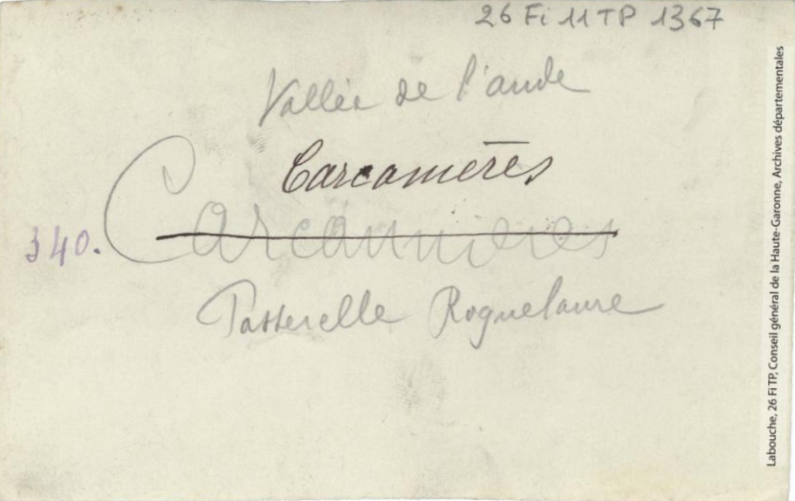 26 Fi 11 TP 1367
Vallée de l'aude
Carcanières
340.
Carcannieres
Passerelle Roquelaure
Labouche, 26 Fi TP, Conseil général de la Haute-Garonne, Archives départementales